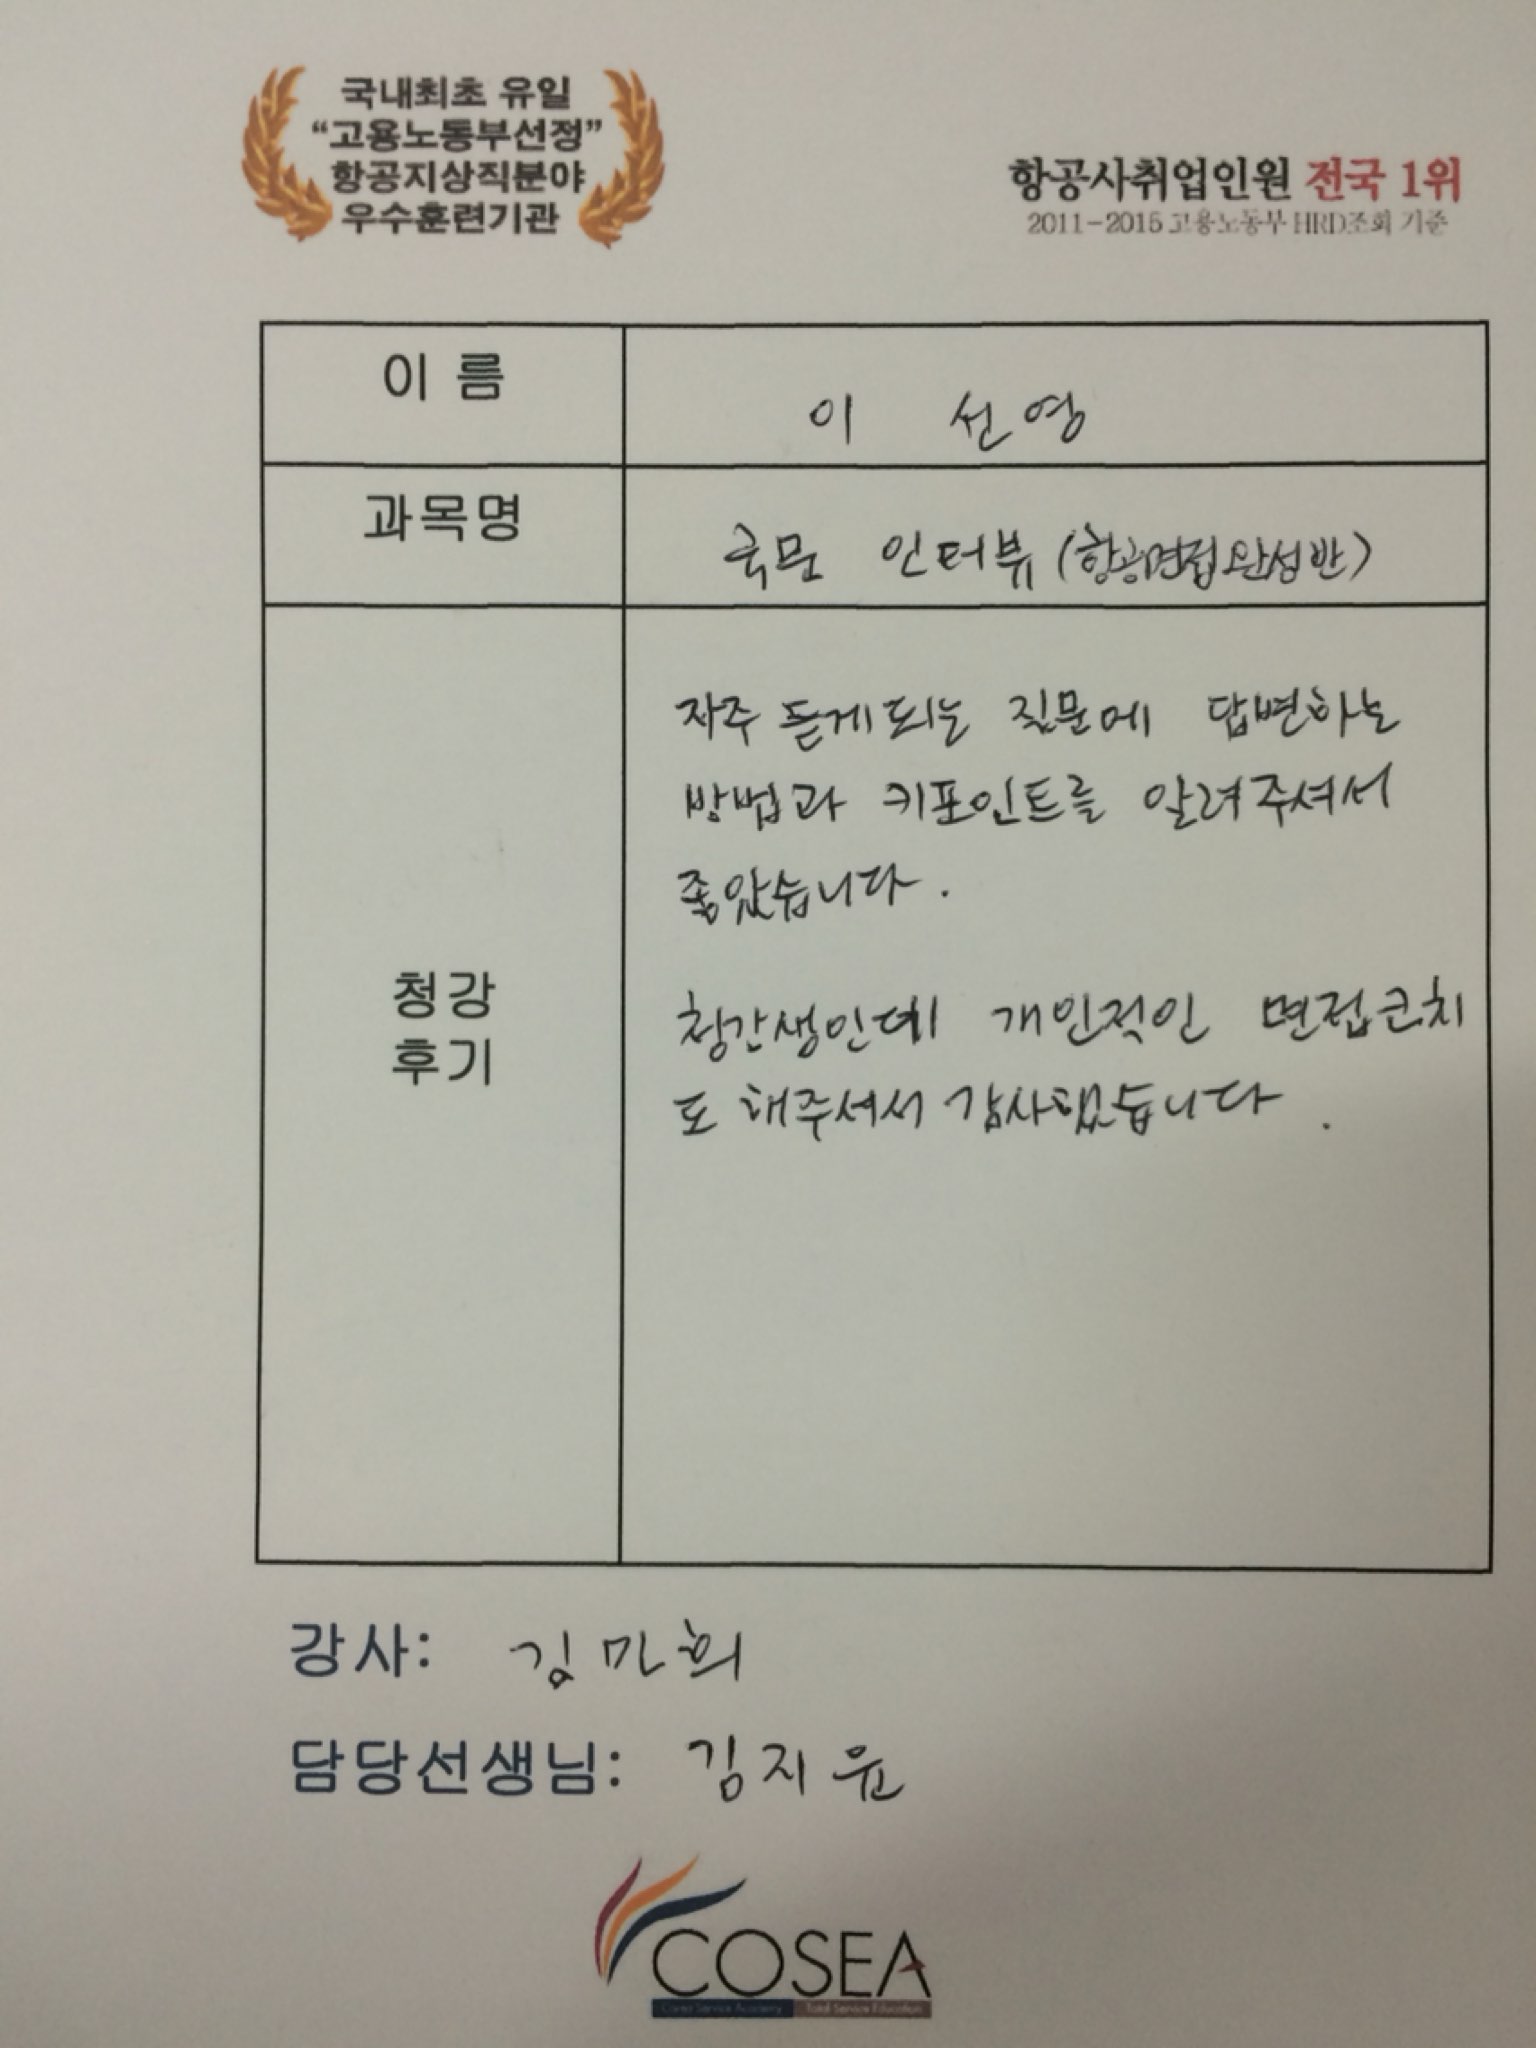 국내최초 유일
“고용노동부선정”
항공지상직분야
우수훈련기관
항공사취업인원 전국 1위
2011-2015 고용노동부 HRD조회 기준
이 름
이 선영
과목명
국문 인터뷰 (항공면접완성반)
자주 듣게되는 질문에 답변하는
방법과 키포인트를 알려주셔서
좋았습니다.
청강
후기
청강생인데 개인적인 면접코치
도 해주셔서 감사했습니다.
강사: 김민희
담당선생님: 김지윤
COSEA
Corea Service Academy Total Service Education